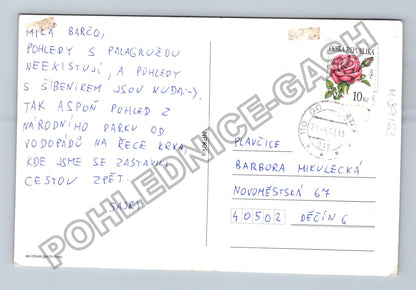 MILÁ BARČO,
POHLEDY S PALAGRUŽOU
NEEXISTUJÍ, A POHLEDY
S ŠIBENIKEM JSOU NUDA:-).
TAK ASPOŇ POHLED Z
NÁRODNÍHO PARKU OD
VODOPÁDŮ NA ŘECE KRKA,
KDE JSME SE ZASTAVILI
CESTOU ZPĚT.
ČESKÁ REPUBLIKA
10 Kč
PLAVČICE
BARBORA MIKULECKÁ
NOVOMĚSTSKÁ 67
40502 DĚČÍN 6
POHLEDNICE-GASH